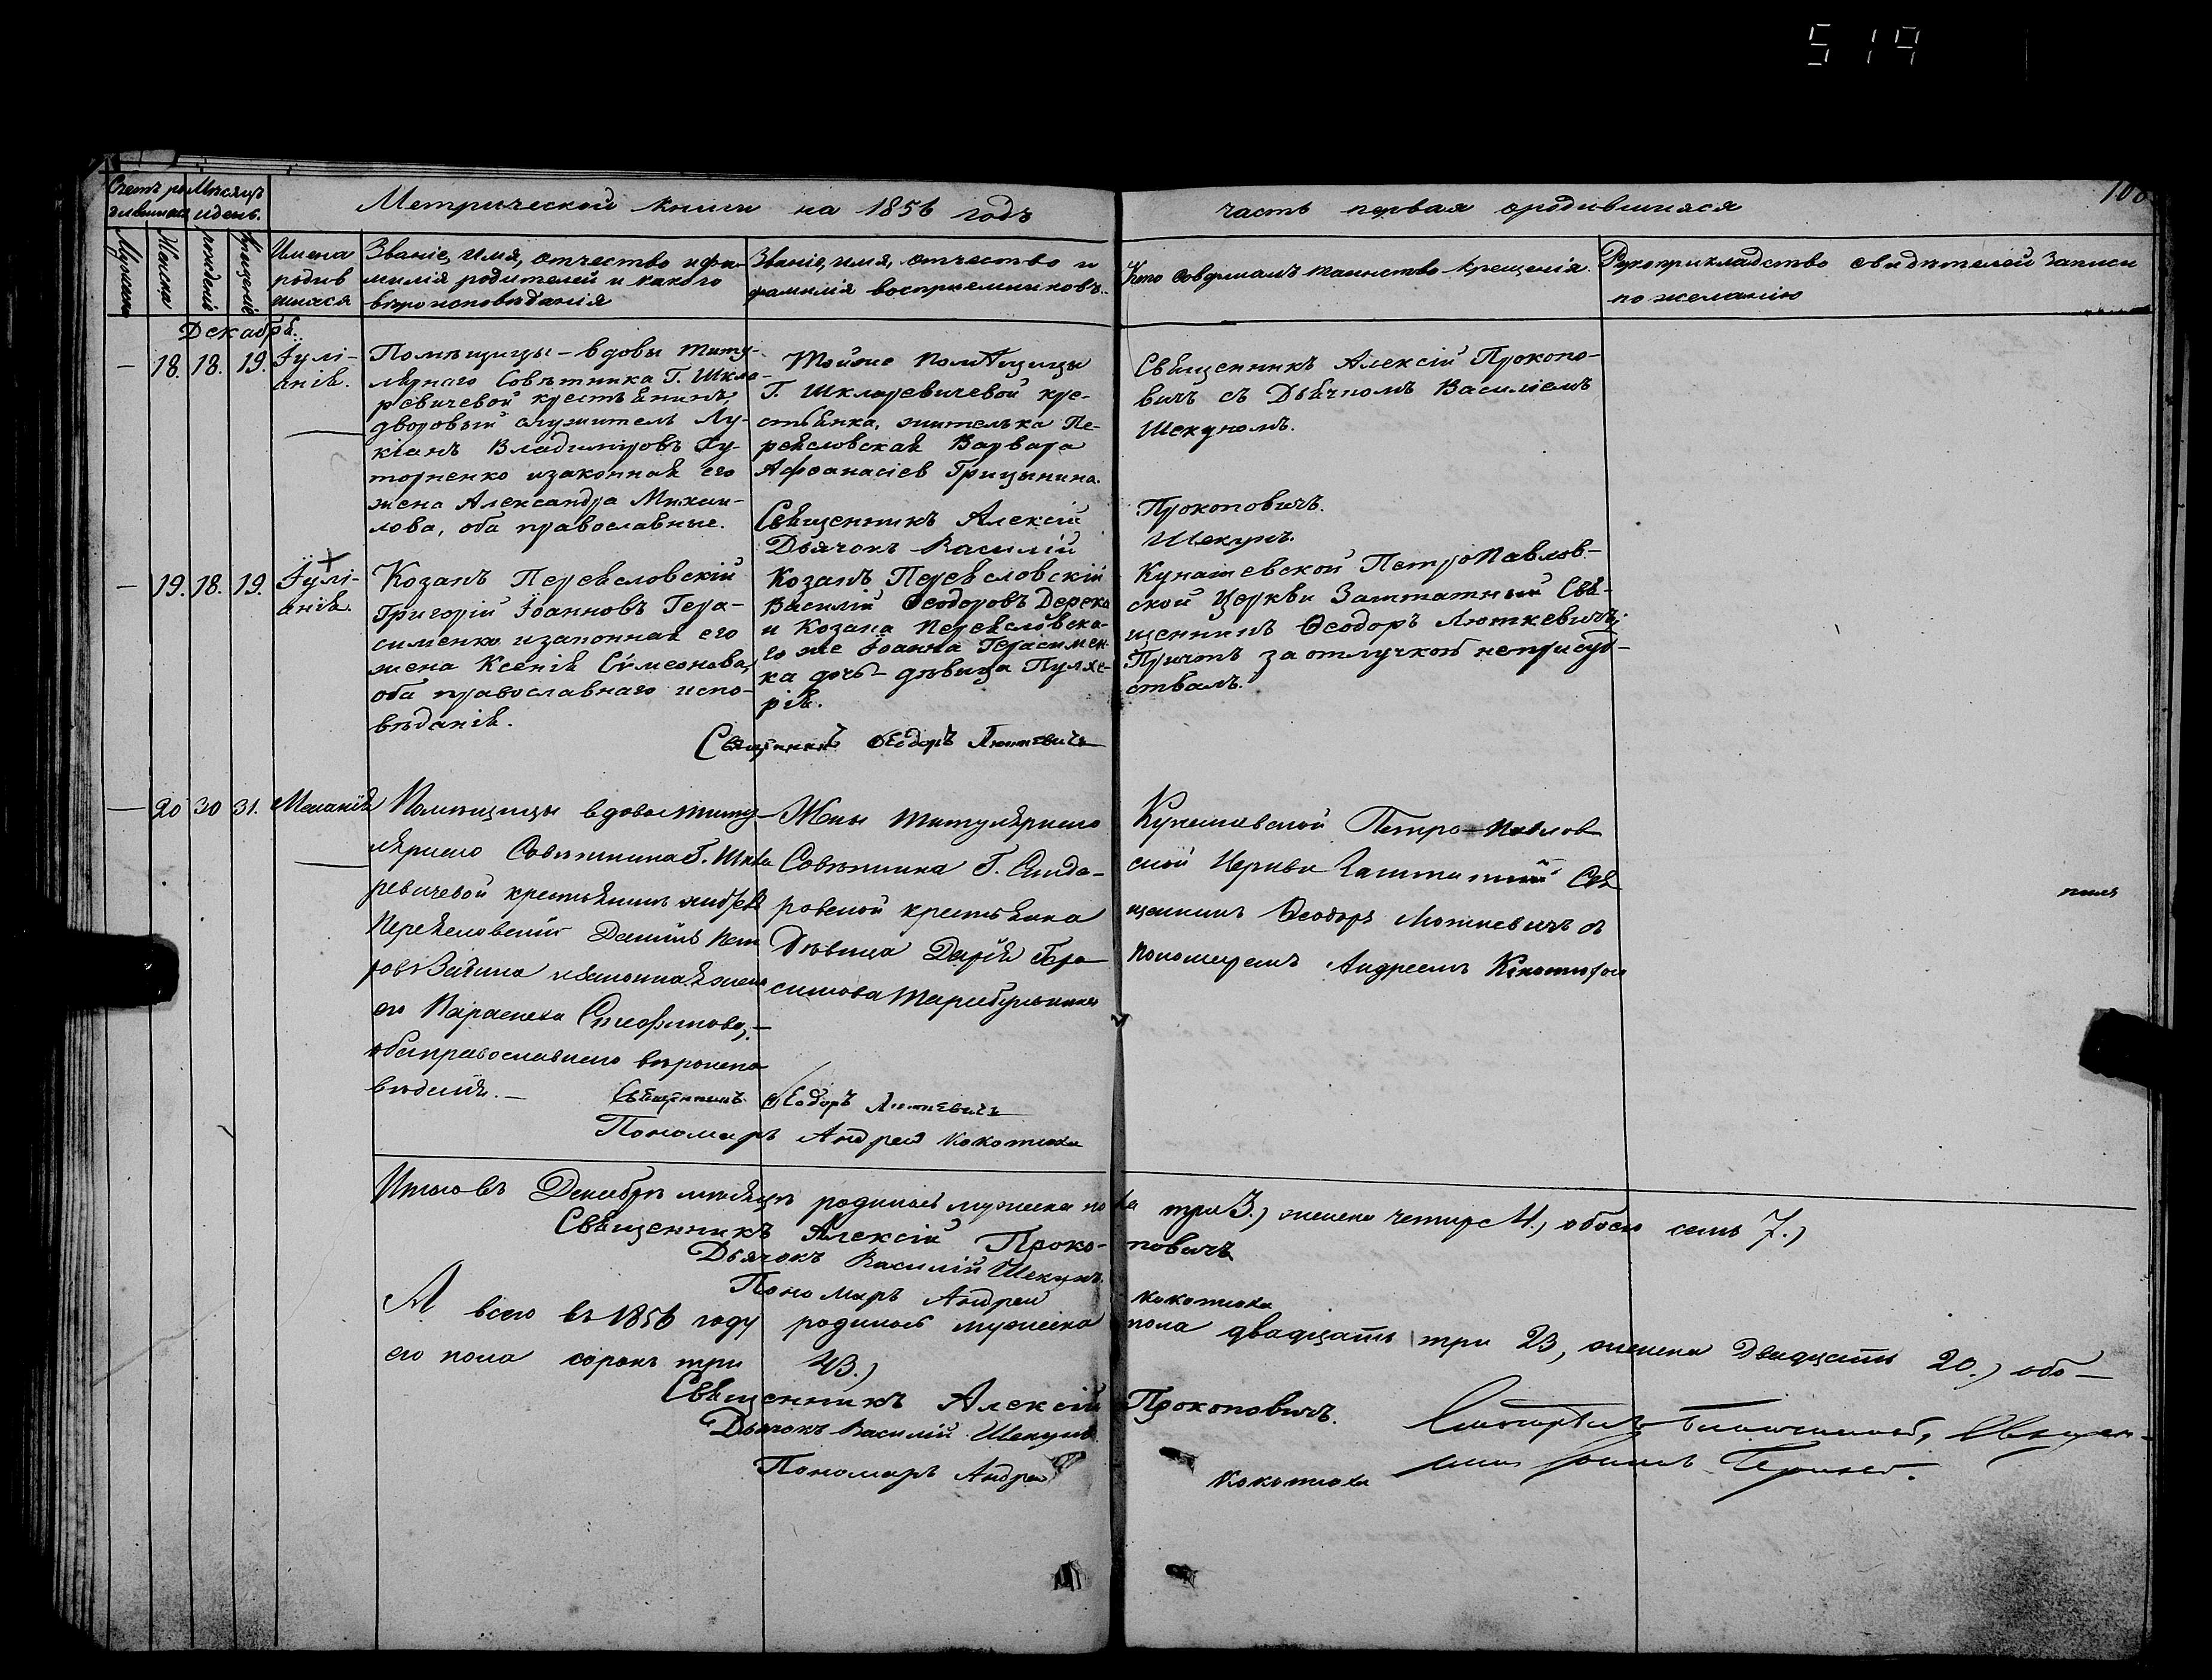 519
108
Метрической книги на 1856 годъ
часть первая о родившихся
Счетъ ро
дившихся
Мѣсяцъ
и день.
Мужска
Женска
рожденіе
Крещеніе
Имена
родив
шихся
Званіе, имя, отчество и фа-
милія родителей и какого
вѣроисповѣданія
Званіе, имя, отчество и
фамилія воспріемниковъ.
Кто совершалъ таинство крещенія.
Рукоприкладство свидѣтелей записи
по желанію
Декабрь.
— 18. 18. 19.
Іулі-
анія.
Помѣщицы – вдовы титу-
лярнаго Совѣтника Г. Шкля-
ревичевой крестьянинъ,
дворовый служитель Лу-
кіанъ Владиміровъ Ху-
торненко и законная его
жена Александра Михаи-
лова, оба православные.
Тойже помѣщицы
Г. Шкляревичевой кре-
стьянка, жителька Пе-
реясловская Варвара
Афанасіев Грицынина.
Священникъ Алексій
Дьячокъ Василій
Священникъ Алексій Прокопо-
вичъ съ Дьячкомъ Василіемъ
Шекуномъ.
Прокоповичъ.
Шекунъ.
— 19. 18. 19.
Іулі-
анія.
Козакъ Переясловскій
Григорій Іоанновъ Гера-
сименко и законная его
жена Ксенія Сѵмеонова,
оба православнаго испо-
вѣданія.
Козакъ Переясловскій
Василій Ѳеодоровъ Дерека
и Козака Переясловска-
го же Іоанна Герасимен-
ка дочь – дѣвица Пулхе-
рія.
Священникъ Ѳеодоръ Люткевичъ
Кунашевской ПетроПавлов-
ской Церкви Заштатный Свя-
щенникъ Ѳеодоръ Люткевичъ;
Причтъ за отлучкою неприсуд-
ствалъ.
— 20 30 31.
Меланія
Помѣщицы вдовы титу-
лярнаго Совѣтника Г. Шкля
ревичевой крестьянинъ
Переясловскій Даніилъ Пет
ровъ и законная жена
его Параскева Стефанова, –
оба православнаго вѣроиспо
вѣданія. –
Жены титулярнаго
Совѣтника Г.
ровской крестьянка
Дѣвица Дарія Гера-
симова
Священникъ Ѳеодоръ Люткевичъ
Пономарь Андрей Кокотюха
Кунашевской Петро – Павлов
ской Церкви Заштатный Свя
щенникъ Ѳеодоръ Люткевичъ съ
пономаремъ Андреемъ Кокотюхою
Итого въ Декабрѣ мѣсяцѣ родилось мужеска пола три 3.) женска четыре 4.) обоего семь 7.)
Священникъ Алексій Проко-повичъ
Дьячокъ Василій Шекунъ.
Пономарь Андрей Кокотюха
А всего въ 1856 году родилось мужеска пола двадцать три 23, женска двадцать 20.) обо –
его пола сорокъ три 43.)
Священникъ Алексій Прокоповичъ.
Дьячокъ Василій Шекунъ
Пономарь Андрей Кокотюха